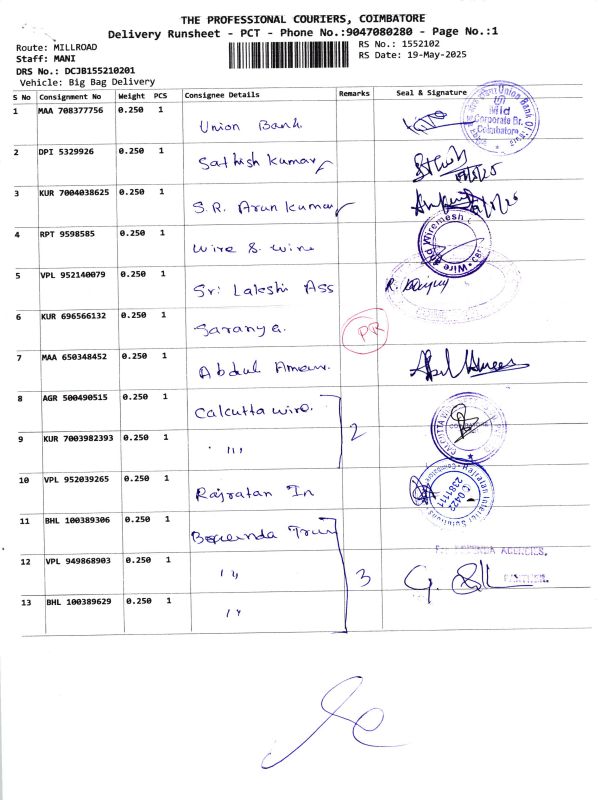 THE PROFESSIONAL COURIERS, COIMBATORE
Delivery Runsheet - PCT - Phone No.:9047080280 - Page No.:1
Route: MILLROAD
RS No.: 1552102
Staff: MANI
RS Date: 19-May-2025
DRS No.: DCJB155210201
Vehicle: Big Bag Delivery
S No Consignment No Weight PCS Consignee Details Remarks Seal & Signature
1 MAA 708377756 0.250 1 Union Bank
Mid Corporate Br. Coimbatore
2 DPI 5329926 0.250 1 Sathish Kumar
3 KUR 7004038625 0.250 1 S.R. Arun Kumar
4 RPT 9598585 0.250 1 Wire & Wire
5 VPL 952140079 0.250 1 Sri Lakshi Ass
6 KUR 696566132 0.250 1 Saranya. PR
7 MAA 650348452 0.250 1 Abdul
8 AGR 500490515 0.250 1 Calcutta wire.
9 KUR 7003982393 0.250 1 ,,, 2
10 VPL 952039265 0.250 1 Rajratan In
0422 2381111
11 BHL 100389306 0.250 1
12 VPL 949868903 0.250 1 ,, 3
AGENCIES,
PARTNER.
13 BHL 100389629 0.250 1 ,,